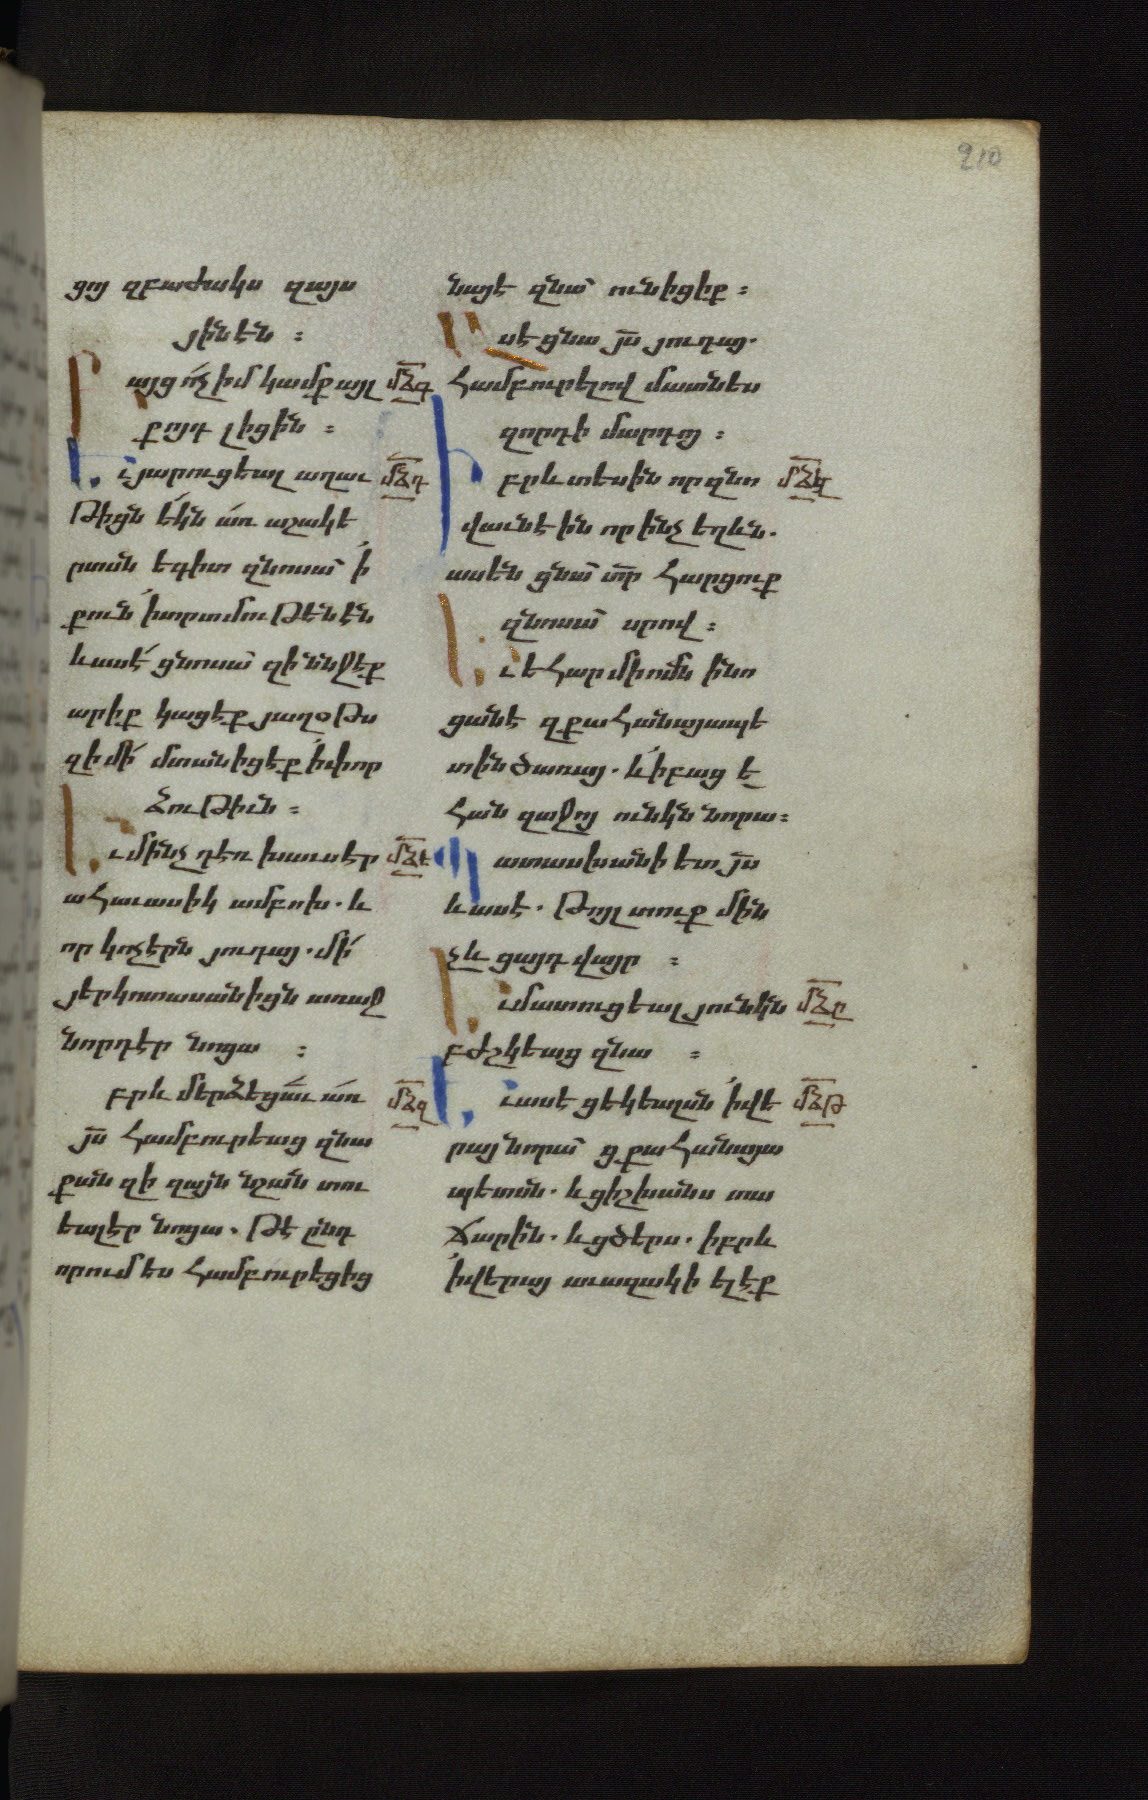 210
ցոյ զբաժակս զայս
յինէն ։
Բայց ո՛չ իմ կամք այլ մՃգ
քոյդ լիցին ։
Եւ յարուցեալ աղաւ մՃդ
թիցն եկն առ աշակե
րտսն եգիտ զնոսա ՛ի
քուն ՛ի տրտմութենէն
և ասէ ցնոսա զի ննջէք
արիք կացէք յաղօթս
զի մի՛ մտանիցէք ՛ի փոր
ձութիւն ։
Եւ մինչ դեռ խաւսէր մՃե
ահաւասիկ ամբոխ. և
որ կոչէրն յուդայ. մի՛
յերկոտասանիցն առաջ
նորդէր նոցա ։
Իբրև մերձեցաւ առ մՃզ
յս համբուրեաց զնա
քանզի զայն նշան տու
եալ էր նոցա. թէ ընդ
որում ես համբուրեցից
նայէ զնա ունիցիք ։
Ասէ ցնա յս յուդայ.
համբուրելով մատնես
զորդի մարդոյ ։
Իբրև տեսին որ զնո մՃէ
վաւն էին որ ինչ եղևն.
ասեն ցնա տր հարցուք
զնոսա սրով ։
Եւ եհար մի ոմն ի նո
ցանէ զքահանայապե
տին ծառայ. և ՛ի բաց է
հան զաջոյ ունկն նորա ։
Պատասխանի ետ յս
և ասէ. թոյլ տուք մին
չև ցայդ վայր ։
Եւ մատուցեալ յունկն մՃը
բժշկեաց զնա ։
Եւ ասէ ցեկեալսն ՛ի վե մՃթ
րայ նորա ց քահանայա
պետսն. և ցիշխանս տա
ճարին. և ցծերս. իբրև
՛ի վերայ աւազակի ելէք